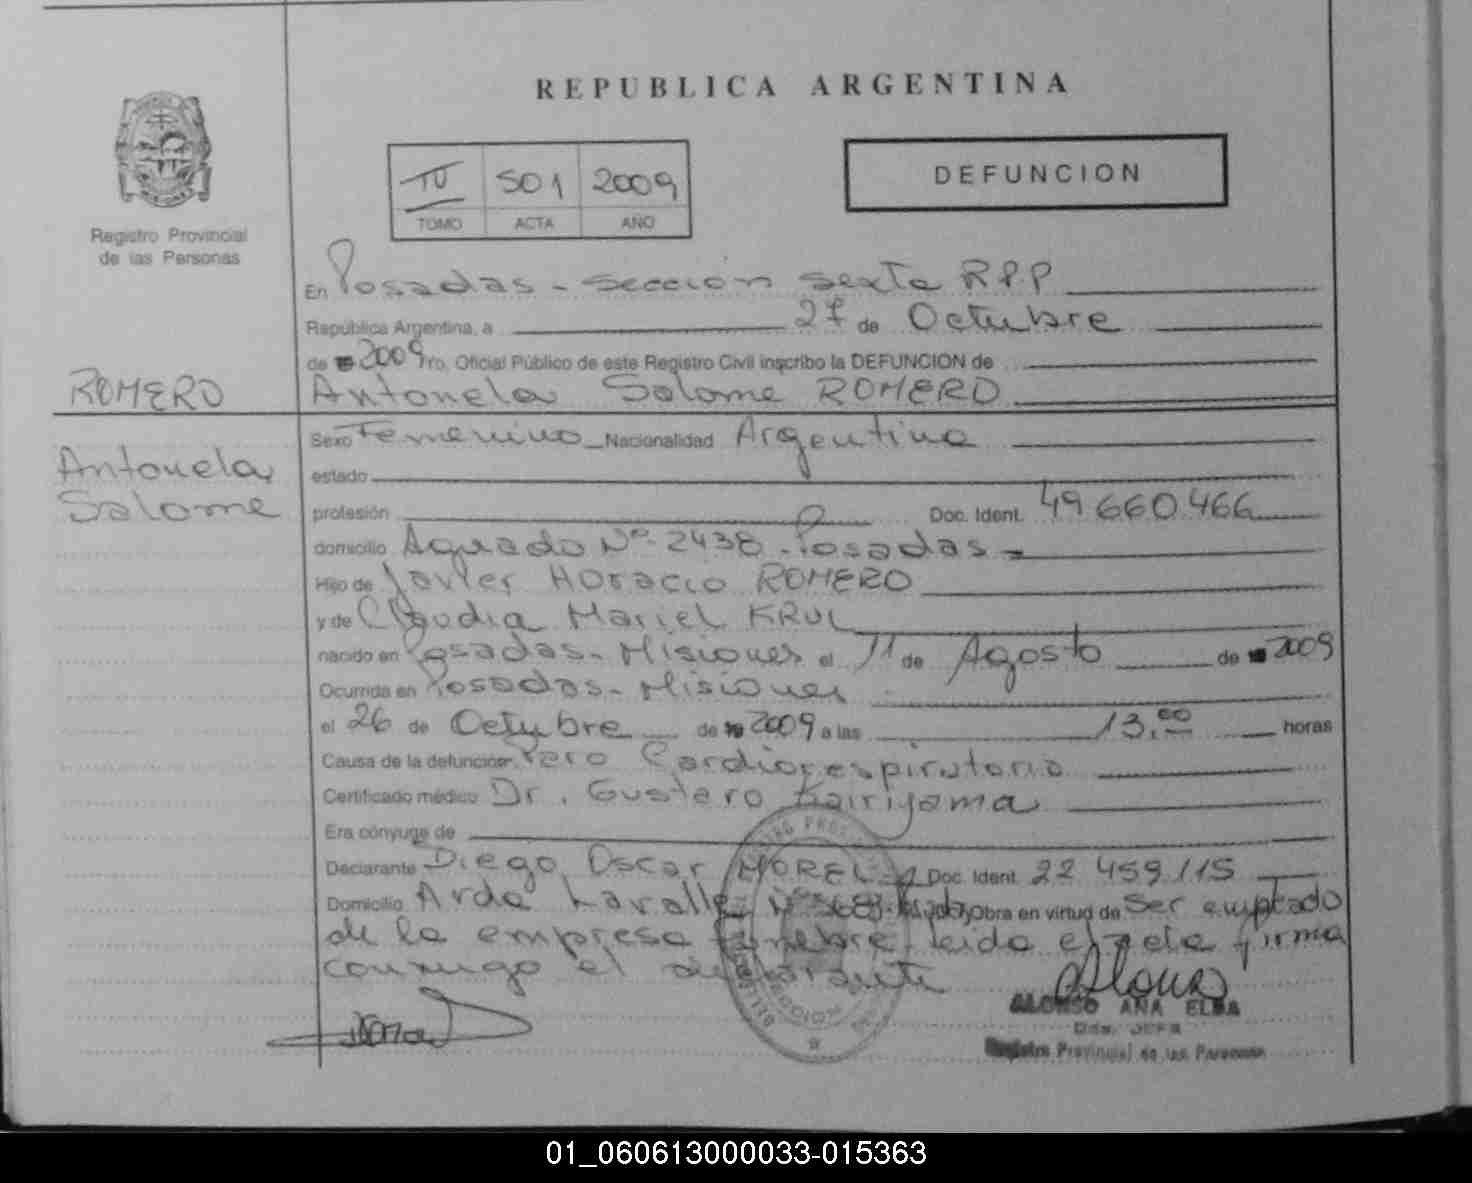 REPUBLICA ARGENTINA
IV 501 2009
TOMO ACTA AÑO
DEFUNCION
Registro Provincial
de las Personas
En Posadas - Sección sexta RPP
República Argentina, a 27 de Octubre
de 2009 Yo. Oficial Público de este Registro Civil inscribo la DEFUNCION de
ROMERO
Antonela Salome ROMERO
Antonela
Salome
Sexo Femenino Nacionalidad Argentina
estado
profesión Doc. Ident. 49 660 466
domicilio Aguado Nº 2438 - Posadas -
Hijo de Javier Horacio ROMERO
y de Claudia Mariel KRUL
nacido en Posadas - Misiones el 11 de Agosto de 2009
Ocurrida en Posadas - Misiones
el 26 de Octubre de 2009 a las 13,00 horas
Causa de la defunción Paro Cardiorespiratorio
Certificado médico Dr. Gustavo Kairiyama
Era cónyuge de
Declarante Diego Oscar MOREL Doc. Ident. 22 459 115
Domicilio Avda Lavalle Nº Obra en virtud de Ser empleado
de la empresa fúnebre, leida el acta firma
conmigo el declarante
ALONSO ANA ELBA
Registro Provincial de las Personas
01_060613000033-015363